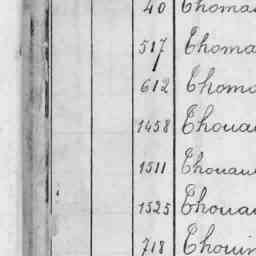 40 Thoma
517 Thoma
612 Thoma
1458 Thoua
1511 Thouau
1525 Thoua
718 Thouin